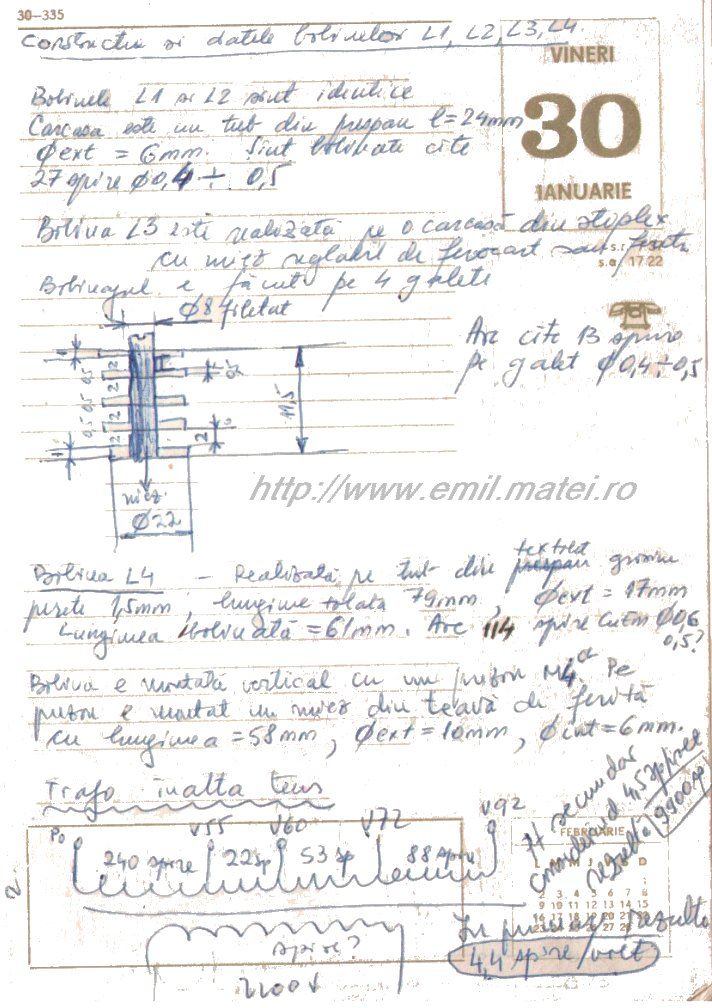 30-335
Constructia si datele bobinelor L1, L2, L3, L4.
VINERI
30
IANUARIE
Bobinele L1 si L2 sint identice
Carcasa este un tub din prespan l=24mm
Øext = 6mm. Sint bobinate cite
27 spire Ø0,4 ÷ 0,5
Bobina L3 este realizată pe o carcasă din stiplex
cu miez reglabil de ferocart sau ferită
s.a. 17 22
Bobinajul e făcut pe 4 galeti
Ø8 filetat
Are cite 13 spire
pe galet Ø0,4÷0,5
1
0,5 0,5 0,5
2 2 2 2
0,5
11,5
2
1
miez
Ø22
http://www.emil.matei.ro
Bobina L4 - Realizată pe tub din prespan textolit grosime
perete 1,5mm, lungime totala 79mm, Øext = 17mm
Lungimea bobinată = 61mm. Are 114 spire CuEm Ø0,6
0,5?
Bobina e montată vertical cu un prezon M4 Pe
prezon e montat un miez din teavă de ferită
cu lungimea = 58mm, Øext = 10mm, Øint = 6mm.
Trafo inalta tens
P0 V55 V60 V72 V92
240 spire 22sp 53 sp 88 spire
spire?
2200V
2
FEBRUARIE
secundar
considerind 4,5 spire
rezultă 9900 sp
In primar rezulta
4,4 spire/volt